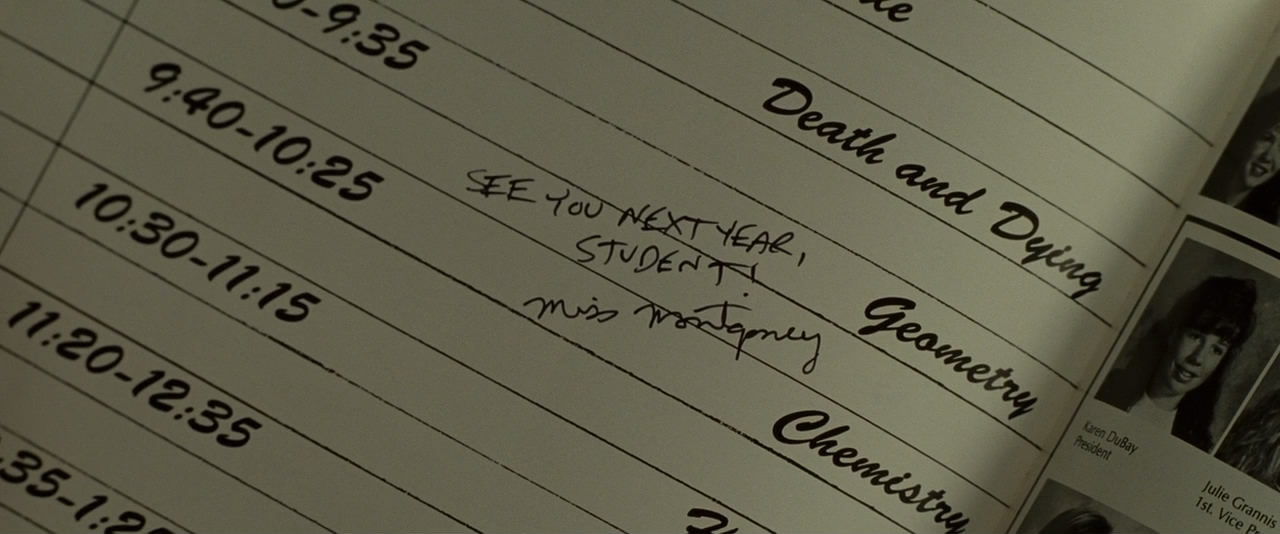 9:35
Death and Dying
9:40-10:25
SEE YOU NEXT YEAR,
STUDENT!
Miss Montgomey
Geometry
10:30-11:15
Chemistry
11:20-12:35
35-1:2
Karen DuBay
President
Julie Grannis
1st. Vice